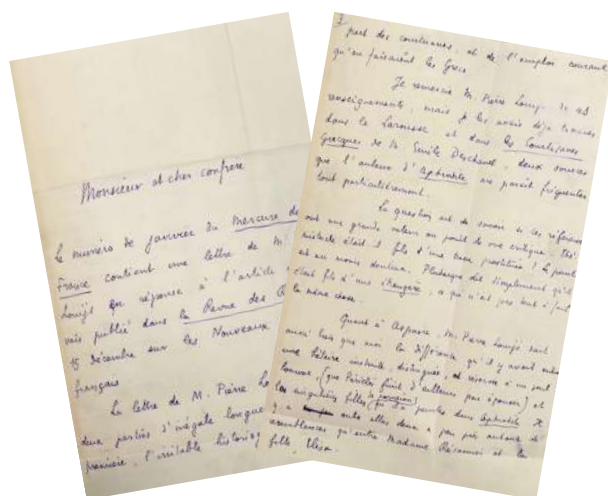 Monsieur et cher confrère
Le numéro de janvier du Mercure de
France contient une lettre de M.
Louÿs en réponse à l'article
vais publié dans la Revue des
15 décembre sur les Nouveaux
français
La lettre de M. Pierre Lo
deux parties d'inégale longue
première, l'irritable
3
part des courtisanes, et de l'emploi courant
qu'en faisaient les Grecs
Je remercie M. Pierre Louÿs de ces
renseignements, mais je les avais déjà trouvés
dans le Larousse et dans les Courtisanes
Grecques de M. Emile Deschanel, deux sources
que l'auteur d'Aphrodite me paraît fréquenter
tout particulièrement.
La question est de savoir si ces références
ont une grande valeur au point de vue critique. Thé-
mistocle était-il fils d'une prostituée? Le point
est au moins douteux. Plutarque dit simplement qu'il
était fils d'une étrangère, ce qui n'est pas tout à fait
la même chose.
Quant à Aspasie, M. Pierre Louÿs sait
aussi bien que moi la différence qu'il y avait entre
une hétaïre instruite, distinguée, et réservée à un seul
homme, (que Périclès finit d'ailleurs par épouser) et
les singulières filles dans Aphrodite. Il
y a entre elles deux à peu près autant de
ressemblances qu'entre Madame Récamier et la
fille Elisa.